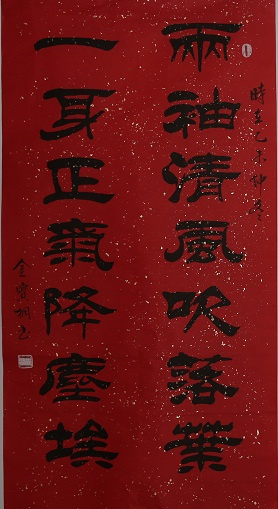 兩袖清風吹落葉
時在乙未仲冬
一身正氣降塵埃